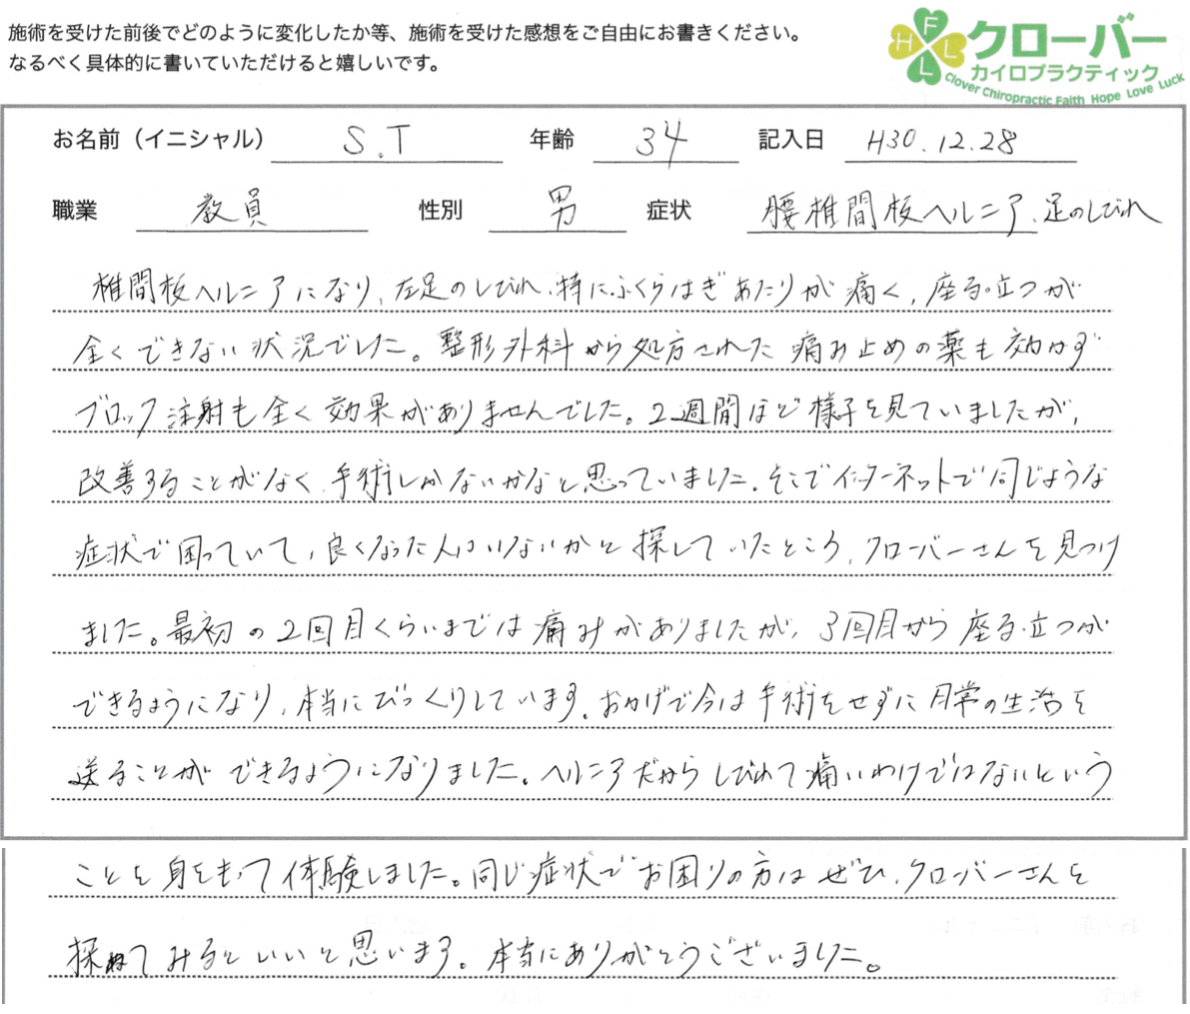 施術を受けた前後でどのように変化したか等、施術を受けた感想をご自由にお書きください。
なるべく具体的に書いていただけると嬉しいです。
HFLL
クローバー
カイロプラクティック
Clover Chiropractic Faith Hope Love Luck
お名前（イニシャル） S.T 年齢 34 記入日 H30.12.28
職業 教員 性別 男 症状 腰椎間板ヘルニア、足のしびれ
椎間板ヘルニアになり、左足のしびれ、特にふくらはぎあたりが痛く、座る・立つが
全くできない状況でした。整形外科から処方された痛み止めの薬も効かず
ブロック注射も全く効果がありませんでした。2週間ほど様子を見ていましたが、
改善することがなく、手術しかないかなと思っていました。そこでインターネットで同じような
症状で困っていて、良くなった人はいないかと探していたところ、クローバーさんを見つけ
ました。最初の2回目くらいまでは痛みがありましたが、3回目から座る・立つが
できるようになり、本当にびっくりしています。おかげで今は手術をせずに日常の生活を
送ることができるようになりました。ヘルニアだからしびれて痛いわけではないという
ことを身をもって体験しました。同じ症状でお困りの方はぜひ、クローバーさんを
探ねてみるといいと思います。本当にありがとうございました。